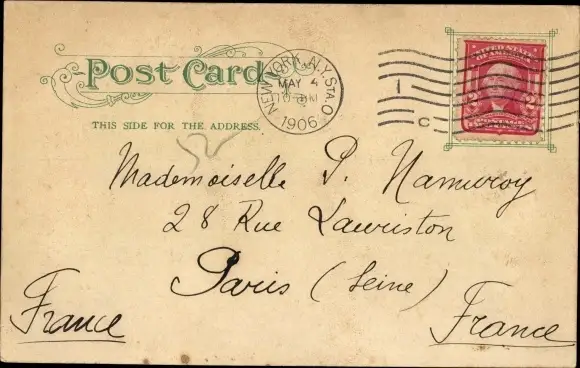 Post Card
NEW YORK, N.Y. STA. O
MAY 4
1906
1
C
UNITED STATES
OF AMERICA
2 2
THIS SIDE FOR THE ADDRESS.
52
Mademoiselle P. Namuroy
28 Rue Lauriston
Paris (Seine)
France
France